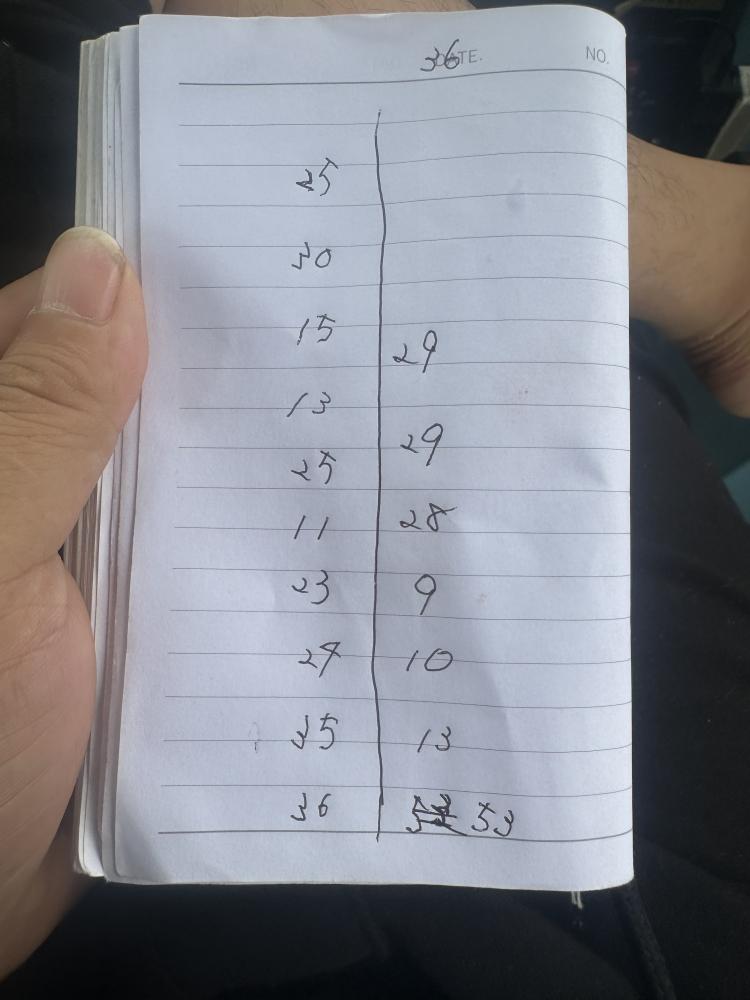 36 DATE. NO.
25
30
15
29
13
29
25
28
11
23
9
10
35
13
36
53